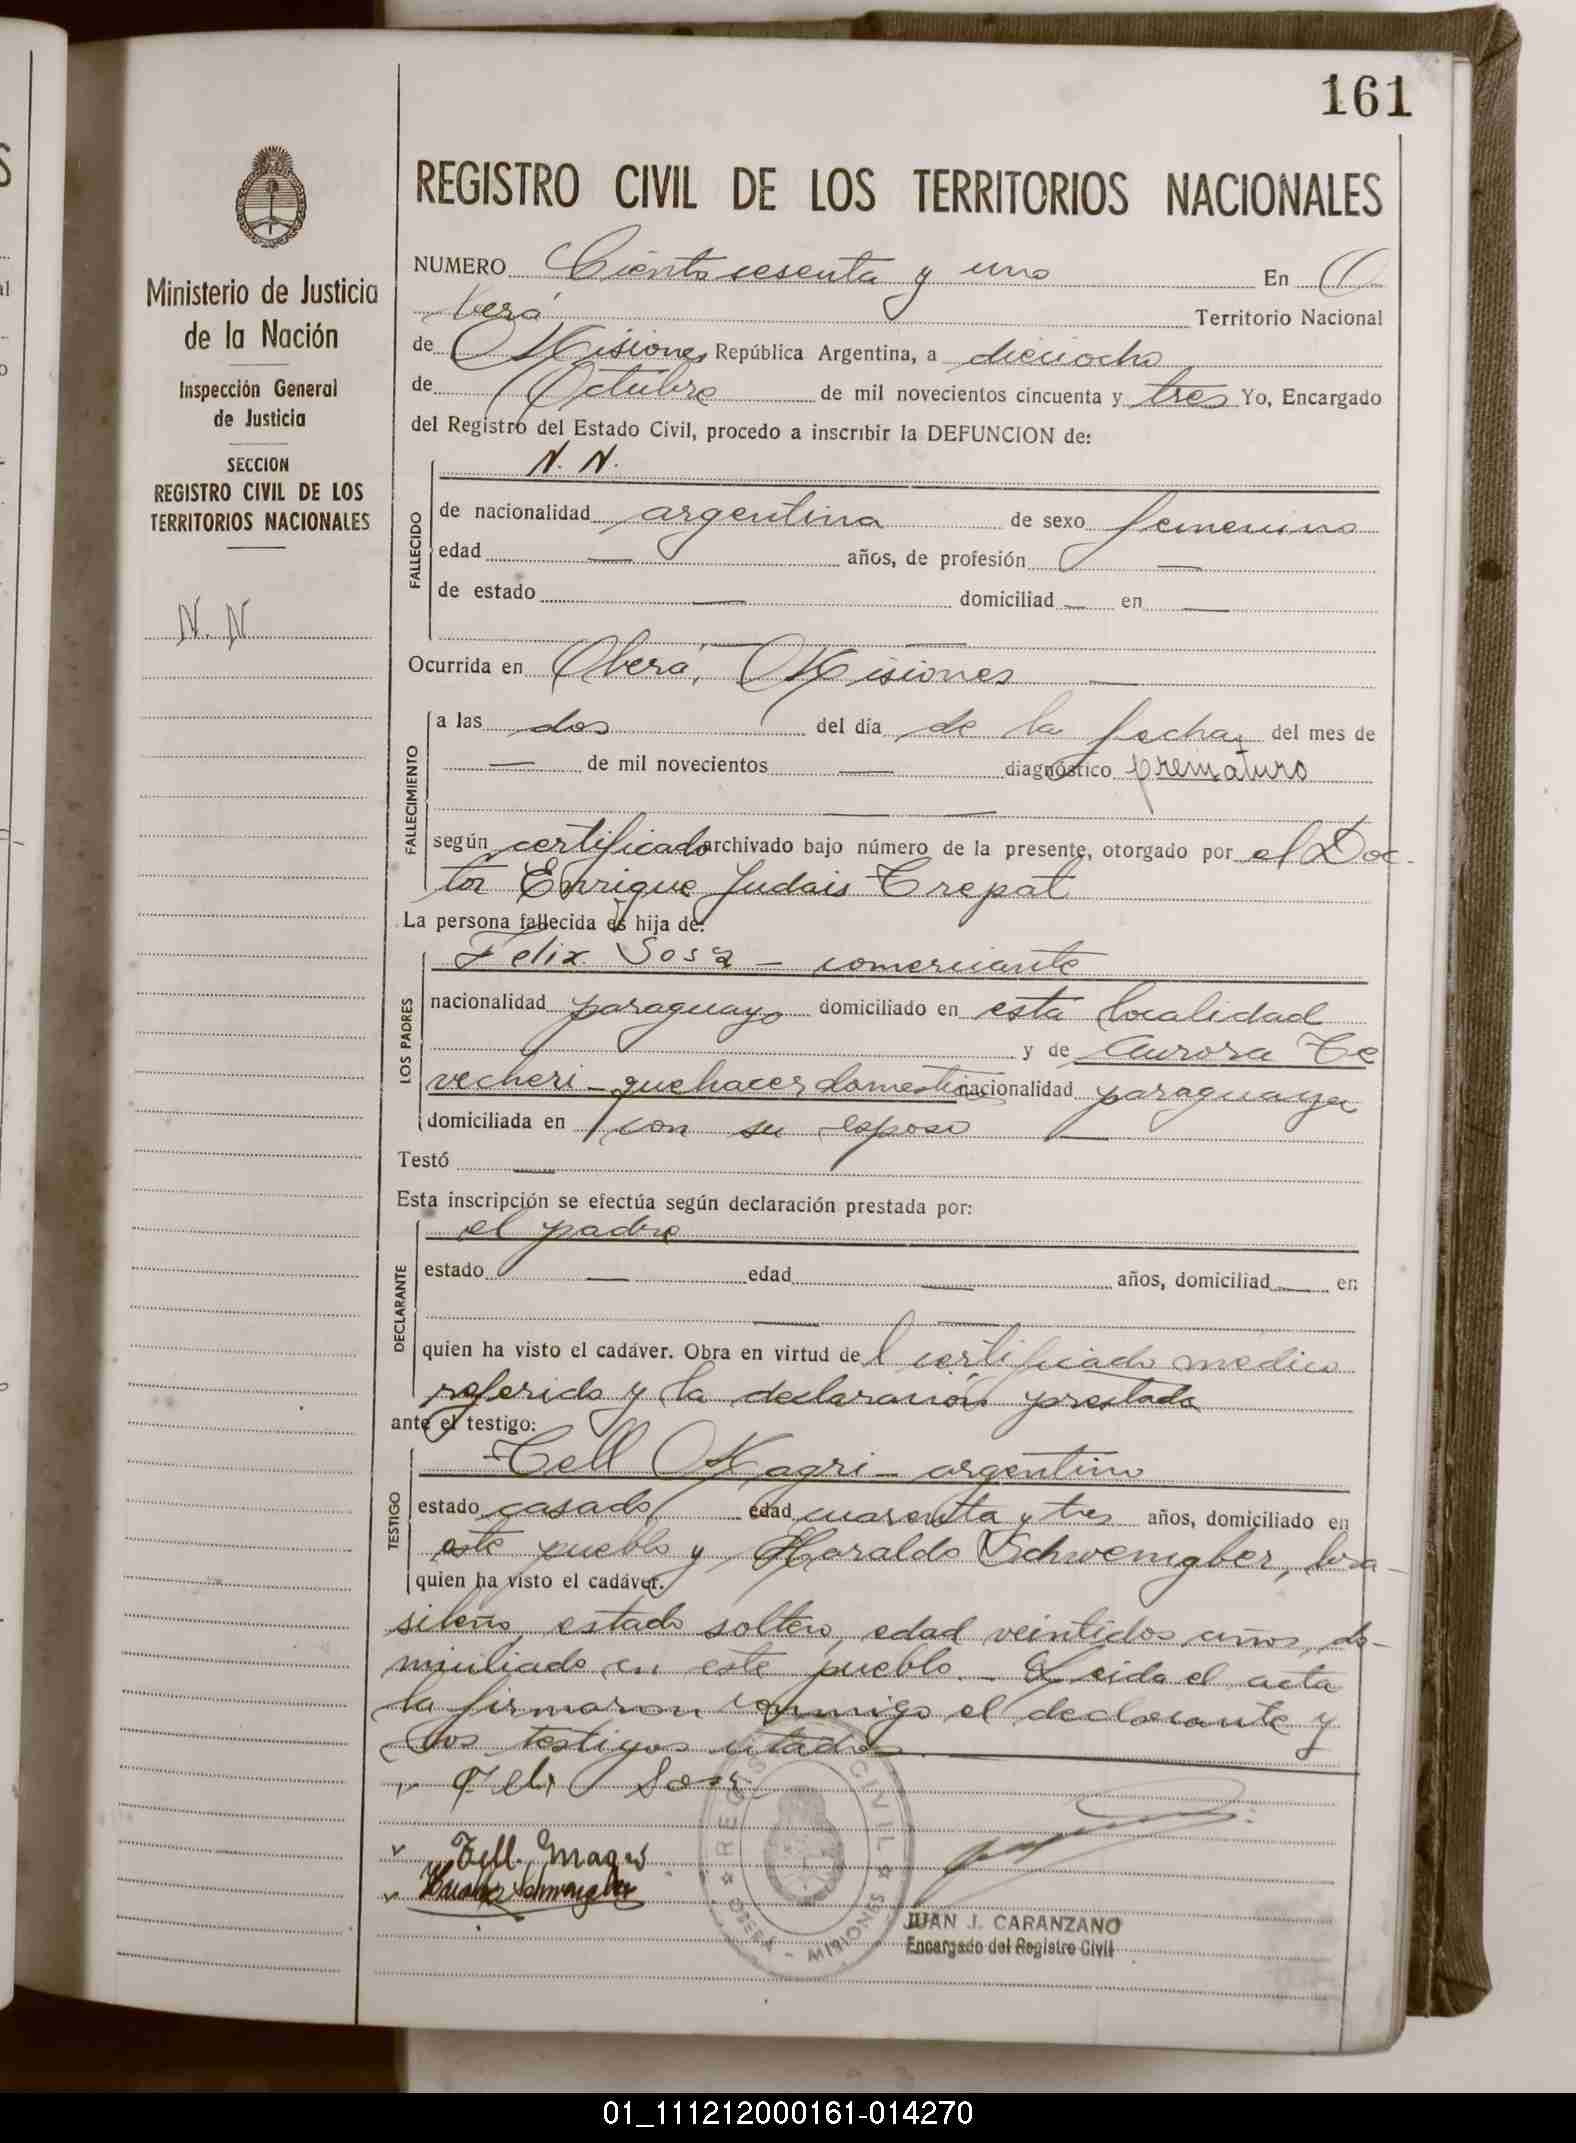 161
REGISTRO CIVIL DE LOS TERRITORIOS NACIONALES
Ministerio de Justicia
de la Nación
Inspección General
de Justicia
SECCION
REGISTRO CIVIL DE LOS
TERRITORIOS NACIONALES
N. N
NUMERO Ciento sesenta y uno En O
berá Territorio Nacional
de Misiones República Argentina, a dieciocho
de Octubre de mil novecientos cincuenta y tres Yo, Encargado
del Registro del Estado Civil, procedo a inscribir la DEFUNCION de:
N. N.
FALLECIDO
de nacionalidad argentina de sexo femenino
edad — años, de profesión —
de estado — domiciliad — en —
Ocurrida en Oberá, Misiones —
FALLECIMIENTO
a las dos del día de la fecha del mes de
— de mil novecientos — diagnóstico prematuro
según certificado archivado bajo número de la presente, otorgado por el Doc-
tor Enrique Judais Trepat
La persona fallecida es hija de:
LOS PADRES
Felix Sosa — comerciante
nacionalidad paraguayo domiciliado en esta localidad
y de Aurora Te
vecheri — quehacer domestico nacionalidad paraguaya
domiciliada en con su esposo —
Testó —
Esta inscripción se efectúa según declaración prestada por:
DECLARANTE
el padre
estado — edad — años, domiciliad — en
— —
quien ha visto el cadáver. Obra en virtud de l certificado medico
referido y la declaración prestada
ante el testigo:
TESTIGO
Tell Magri — argentino
estado casado edad cuarenta y tres años, domiciliado en
este pueblo y Haraldo Schwemgber, bra-
quien ha visto el cadáver.
sileño, estado soltero, edad veintidos años, do-
miciliado en este pueblo. — Leida el acta
la firmaron conmigo el declarante y
los testigos citados
Felix Sosa
Tell. Magri
REGISTRO CIVIL
OBERA - MISIONES
JUAN J. CARANZANO
Encargado del Registro Civil
01_111212000161-014270